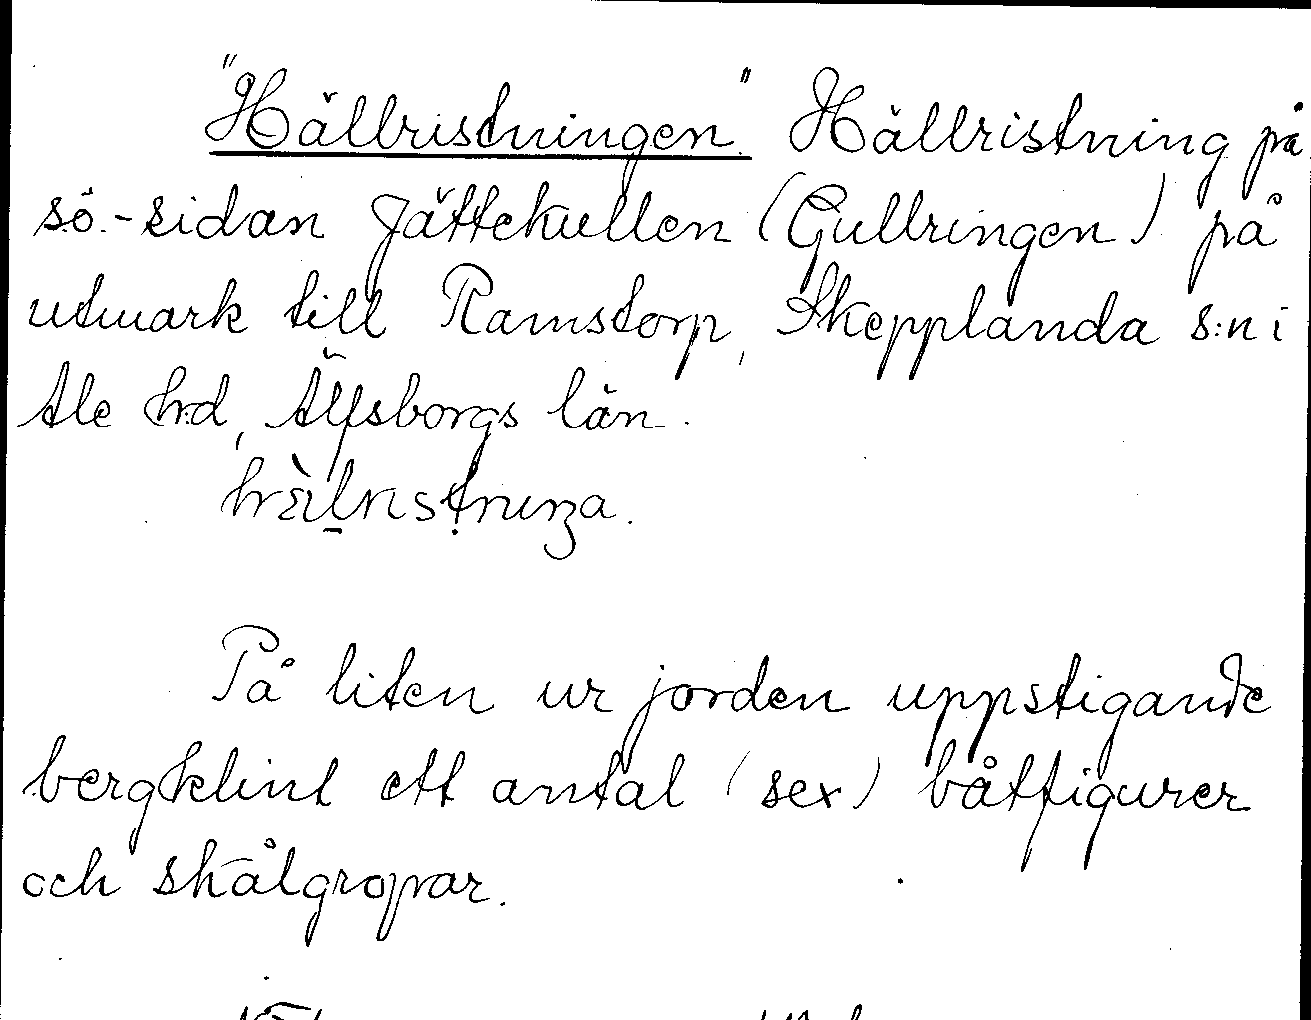 "Hällristningen." Hällristning på
sö.-sidan Jättekullen (Gullringen) på
utmark till Ramstorp, Skepplanda s:n i
Ale hrd, Älfsborgs län.
På liten ur jorden uppstigande
bergklint ett antal (sex) båtfigurer
och skålgropar.